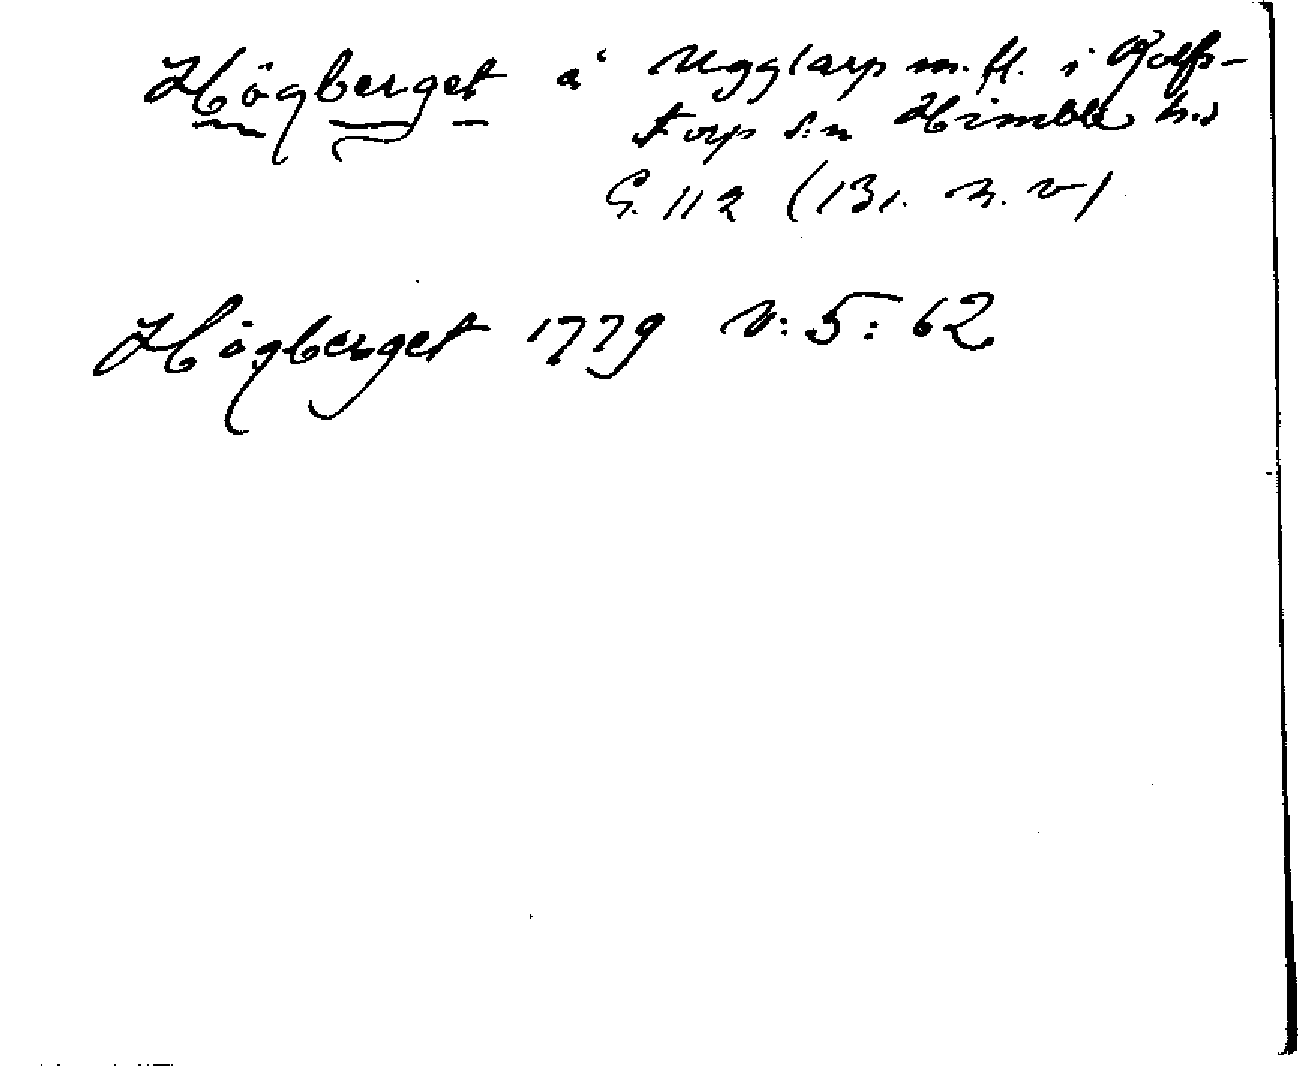 Högberget å Ugglarp m.fl. i Rolfs-
torp s:n Himble h:d
G. 112 (131. n. v)
Högberget 1779 V: 5: 62